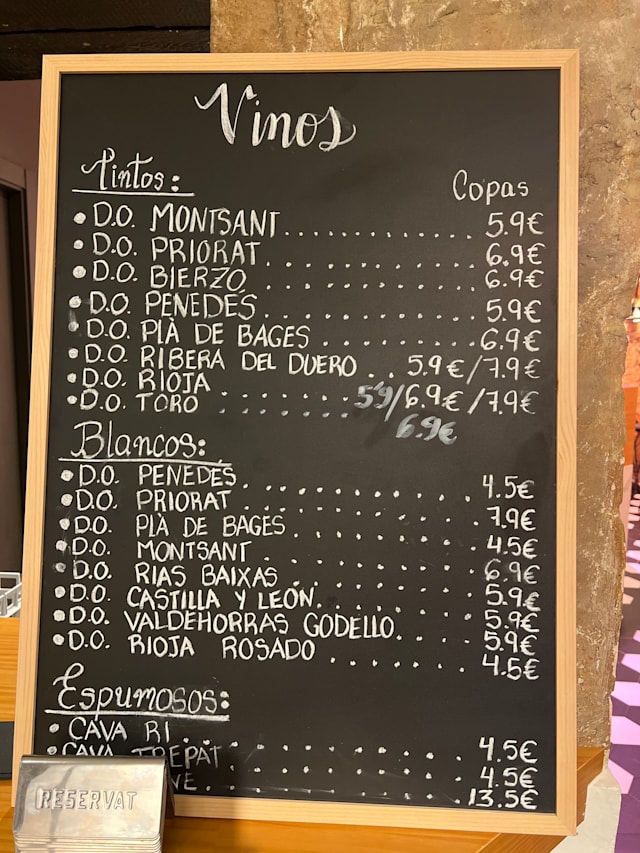 Vinos
Tintos:
Copas
• D.O. MONTSANT.................. 5.9€
• D.O. PRIORAT.................. 6.9€
• D.O. BIERZO.................. 6.9€
• D.O. PENEDÉS.................. 5.9€
• D.O. PLÀ DE BAGES.................. 6.9€
• D.O. RIBERA DEL DUERO.. 5.9€/7.9€
• D.O. RIOJA........ 5'9/6.9€/7.9€
• D.O. TORO........ 6.9€
Blancos:
• D.O. PENEDÉS.................. 4.5€
• D.O. PRIORAT.................. 7.9€
• D.O. PLÀ DE BAGES.................. 4.5€
• D.O. MONTSANT.................. 6.9€
• D.O. RIAS BAIXAS.................. 5.9€
• D.O. CASTILLA Y LEÓN.................. 5.9€
• D.O. VALDEHORRAS GODELLO........ 5.9€
• D.O. RIOJA ROSADO........ 4.5€
Espumosos:
• CAVA RI.................. 4.5€
• CAVA TREPAT.................. 4.5€
13.5€
RESERVAT